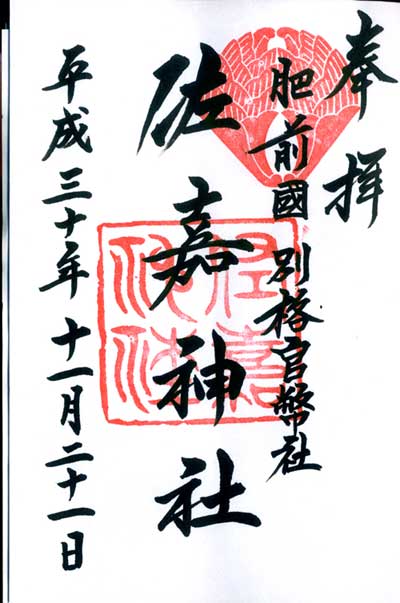 奉拝
肥前國 別格官幣社
佐嘉神社
平成三十年十一月二十一日
佐嘉神社